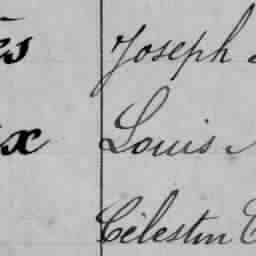 es Joseph
x Louis
Célestin